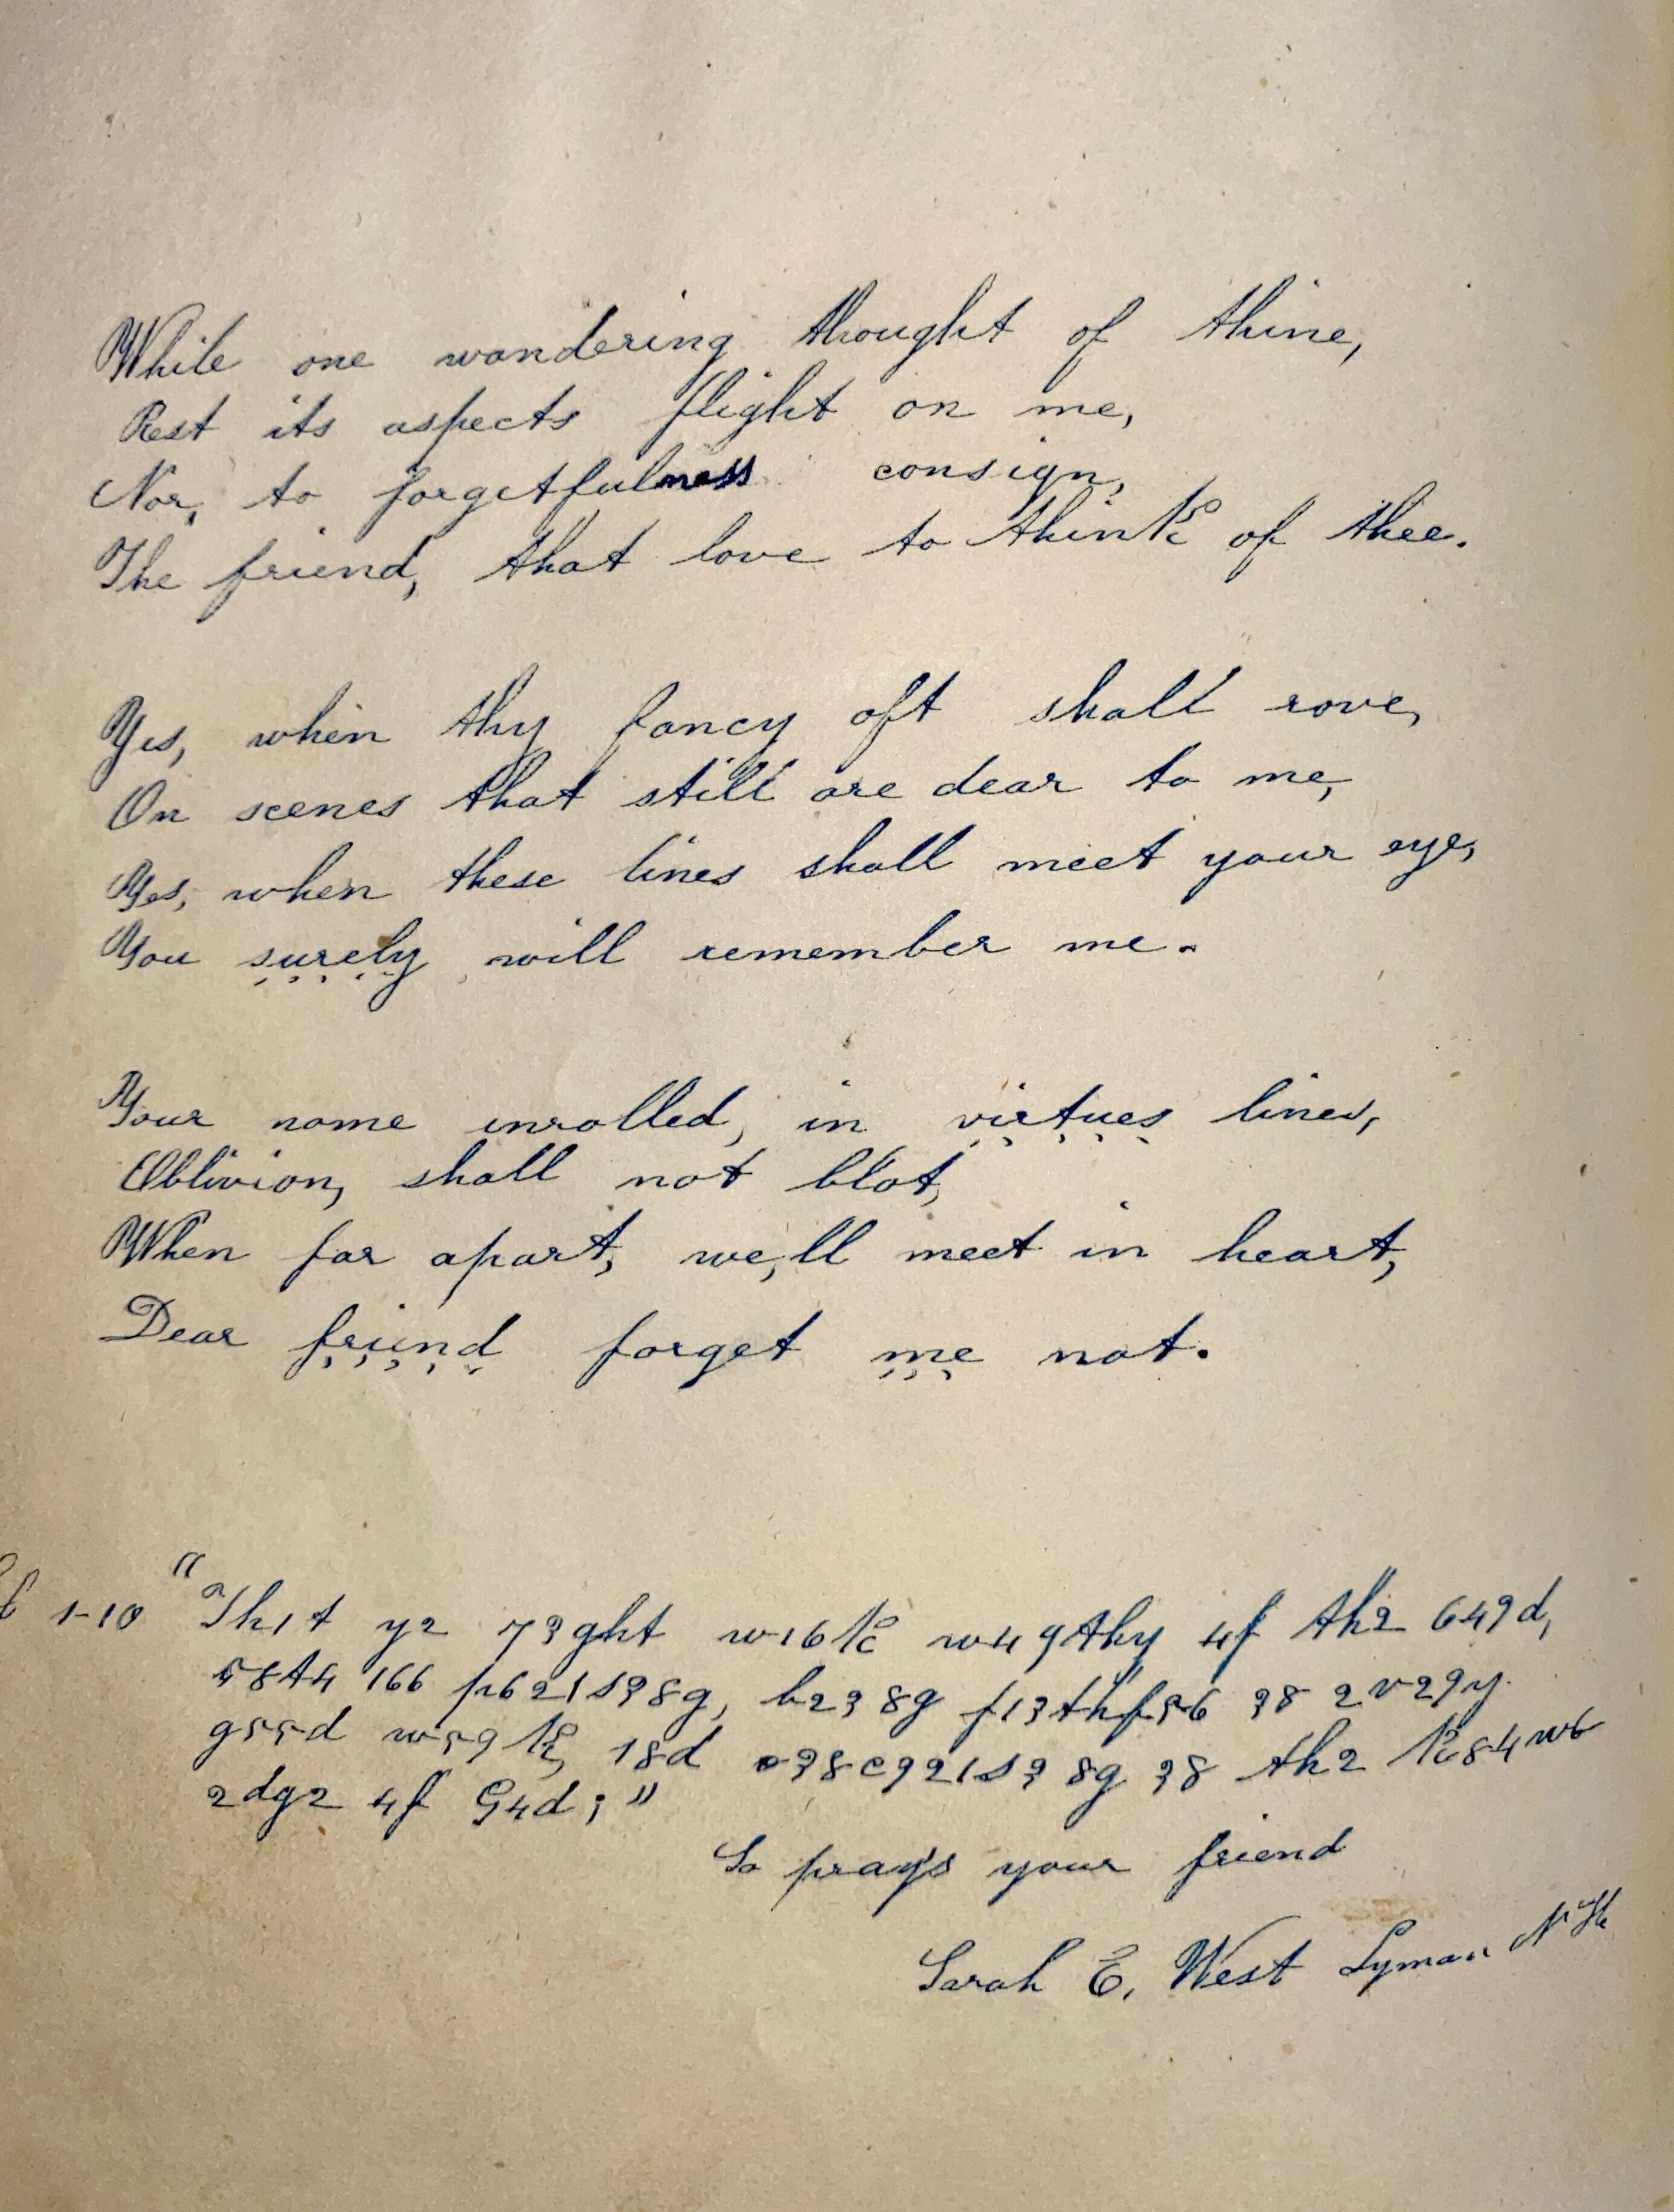 While one wandering thought of thine,
Rest its aspects flight on me,
Nor, to forgetfulness consign,
The friend, that love to think of thee.
Yes, when thy fancy oft shall rove,
On scenes that still are dear to me,
Yes, when these lines shall meet your eye,
You surely will remember me.
Your name enrolled, in virtues lines,
Oblivion, shall not blot,
When far apart, we,ll meet in heart,
Dear friend forget me not.
1-10 "Th1t y2 73ght w16k w49thy 4f th2 649d,
58t4 166 p621s38g, b238g f13thf56 38 2v29y
g55d w59k, 18d 38c921s38g 38 th2 k84w6
2dg2 4f G4d;"
So prays your friend
Sarah E. West Lyman N H